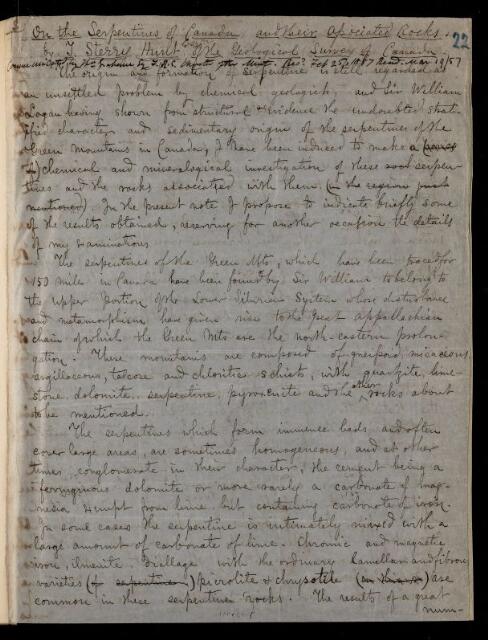 On the Serpentines of Canada and their Associated Rocks.
22
by T. Sterry Hunt Esq of the Geological Survey of Canada.
Communicated by Graham F.R.S. Recd Feb 25 1857 Read Mar 19/57
The origin and formation of Serpentine is still regarded as
an unsettled problem by chemical geologists, and Sir William
Logan having shown from structural evidence the undoubted strati-
fied character and sedimentary origin of the serpentines of the
Green Mountains in Canada, I have been induced to make a
chemical and mineralogical investigation of these serpen-
tines and the rocks associated with them (in the regions just
mentioned). In the present note I propose to indicate briefly some
of the results obtained, reserving for another occasion the details
of my examinations.
The serpentines of the Green Mts, which have been traced for
150 miles in Canada have been found by Sir William to belong to
the upper portion of the Lower Silurian System whose disturbance
and metamorphism have given rise to the great Appalachian
chain of which the Green Mts are the north-eastern prolon-
gation. These mountains are composed of gneissoid, micaceous,
argillaceous, talcose and chloritic schists, with quartzite, lime-
stone, dolomite, serpentine, pyroxenite and the other rocks about
to be mentioned.
The serpentines which form immense beds and often
cover large areas, are sometimes homogeneous, and at other
times conglomerate in their character, the cement being a
ferruginous dolomite or more rarely a carbonate of mag-
nesia exempt from lime but containing carbonate of iron.
In some cases the serpentine is intimately mixed with a
large amount of carbonate of lime. Chromic and magnetic
iron, ilmenite, diallage with the ordinary lamellar and fibrous
varieties (of serpentine) picrolite & chrysotile are
common in these serpentine rocks. The results of a great
num-